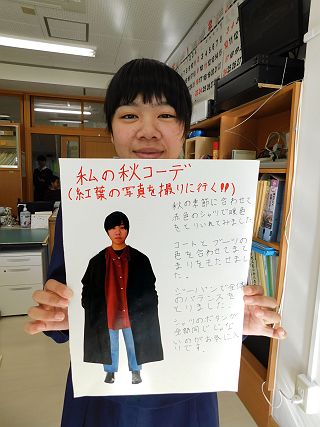 私の秋コーデ
(紅葉の写真を撮りに行く!!)
秋の季節に合わせて
赤色のシャツで暖色
をとりいれてみました
コートとブーツの
色を合わせてまと
まりをもたせまし
た。
ジーパンで全体
のバランスを
とりました。
シャツのボタンが
全部同じじゃな
いのがお気に入
りです。